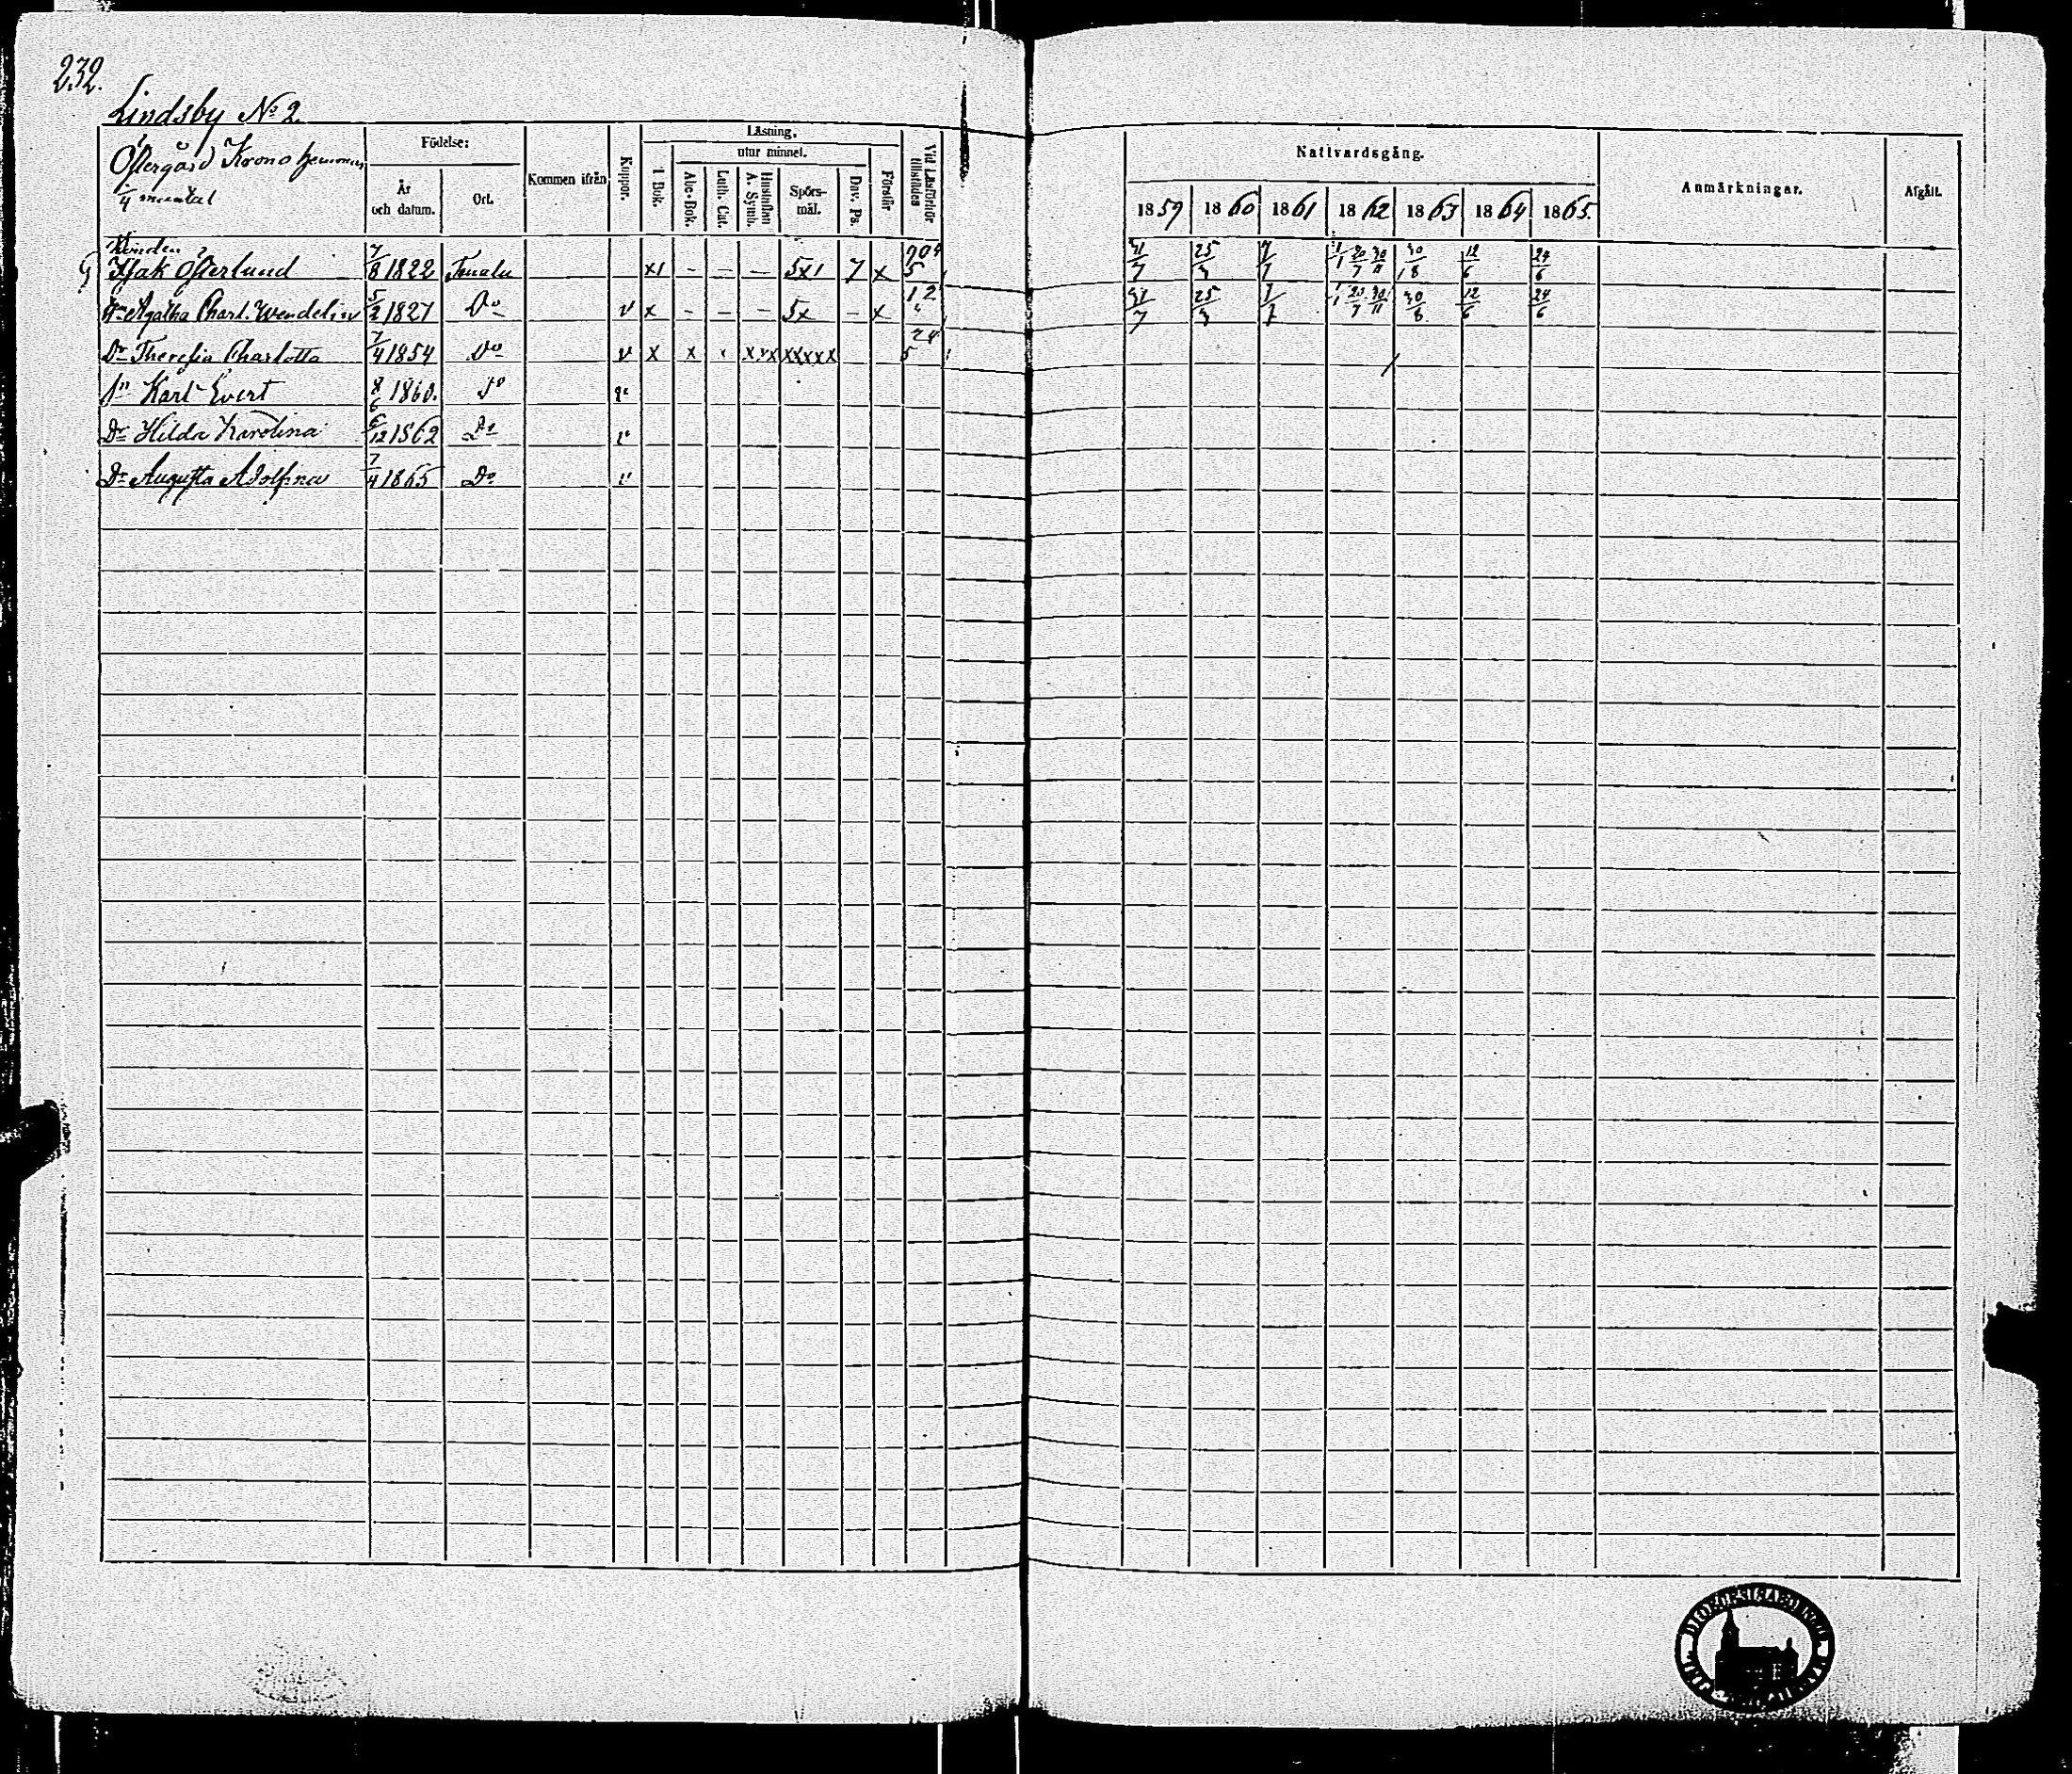 232.
Lindsby No 2.
Östergård Krono hemman
1/4 mantal
Födelse:
År och datum.
Ort.
Kommen ifrån
Koppor.
Läsning.
I Bok.
utur minnet.
Abc-Bok.
Luth. Cat.
Hustaflan A. Symb.
Spörs-mål.
Dav. Ps.
Förstår
Vid Läsförhör tillstädes
Nattvardsgång.
1859 1860 1861 1862 1863 1864 1865.
Anmärkningar.
Afgått.
Isak Österlund 7/8 1822 x1 – – – 5x1 7 x 25/3 1/1 20/7 30/11 30/8 12/6 24/6
Agatha Charl. Wendelin 5/2 1827 Do v x – – – 5x – x 25/3 1/1 20/7 30/11 30/8 12/6 24/6
Dr Theresia Charlotta 7/4 1854 Do v x x x xvx xxxxx
Sn Karl Evert 8/6 1860. Do
Dr Hilda Karolina 6/12 1862 Do v
Dr Augusta Adolfina 7/4 1865 Do v